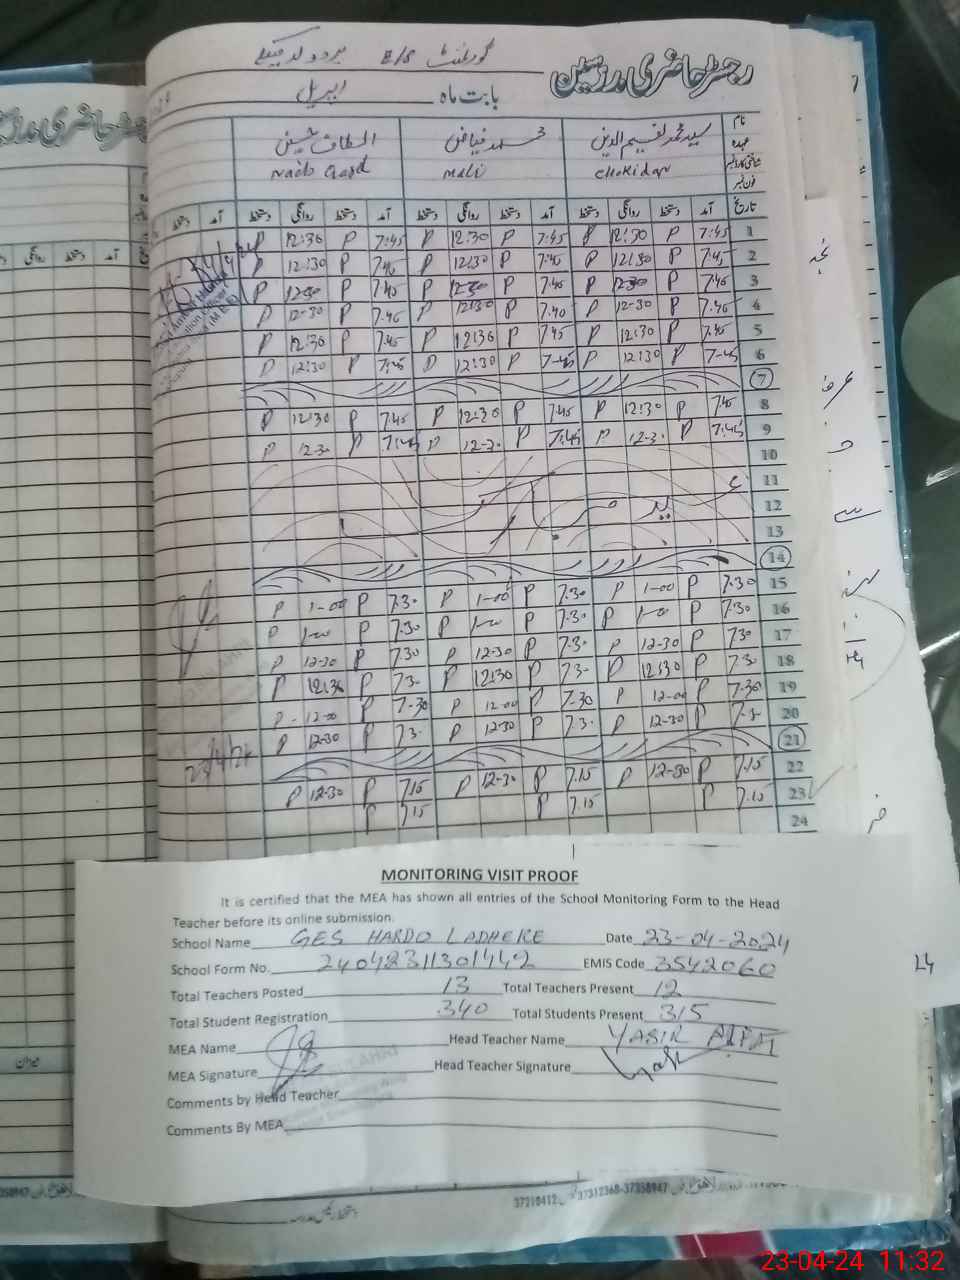 رجسٹر حاضری مدرسین
گورنمنٹ E/S
بابت ماہ اپریل
نام سید محمد نسیم الدین محمد فیاض الطاف حسین
عہدہ Chokidar Mali Naib Qasid
شناختی کارڈ نمبر
فون نمبر
تاریخ آمد دستخط روانگی دستخط آمد دستخط روانگی دستخط آمد دستخط روانگی دستخط آمد
1 7:45 P 12:30 P 7:45 P 12:30 P 7:45 P 12:30 P
2 7:45 P 12:30 P 7:45 P 12:30 P 7:45 P 12:30 P
3 7:45 P 12:30 P 7:45 P 12:30 P 7:45 P 12:30 P
4 7:45 P 12-30 P 7:45 P 12:30 P 7:45 P 12-30 P
5 7:45 P 12:30 P 7:45 P 12:30 P 7:45 P 12:30 P
6 7-45 P 12:30 P 7-45 P 12:30 P 7:45 P 12:30 P
7
8 7:45 P 12:30 P 7:45 P 12:30 P 7:45 P 12:30 P
9 7:45 P 12-30 P 7:45 P 12-30 P 7:45 P 12-30 P
10
11
12 عید
13
14
15 7:30 P 1-00 P 7:30 P 1-00 P 7:30 P 1-00 P
16 7:30 P 1-00 P 7:30 P 1-00 P 7:30 P 1-00 P
17 7:30 P 12-30 P 7:30 P 12-30 P 7:30 P 12-30 P
18 7:30 P 12:30 P 7:30 P 12:30 P 7:30 P 12:30 P
19 7-30 P 12-00 P 7-30 P 12-00 P 7-30 P 12-00 P
20 7:30 P 12-30 P 7:30 P 12:30 P 7:30 P 12-30 P
21
22 7.15 P 12-30 P 7.15 P 12-30 P 7.15 P 12-30 P
23 7.15 P 7.15 P 7.15 P
24
MONITORING VISIT PROOF
It is certified that the MEA has shown all entries of the School Monitoring Form to the Head
Teacher before its online submission.
School Name GES HARDO LADHEKE Date 23-04-2024
School Form No. 24042311301442 EMIS Code 3542060
Total Teachers Posted 13 Total Teachers Present 12
Total Student Registration 340 Total Students Present 315
MEA Name Head Teacher Name YASIR
MEA Signature Head Teacher Signature
Comments by Head Teacher
Comments By MEA
37210412 37312368-37358947
23-04-24 11:32